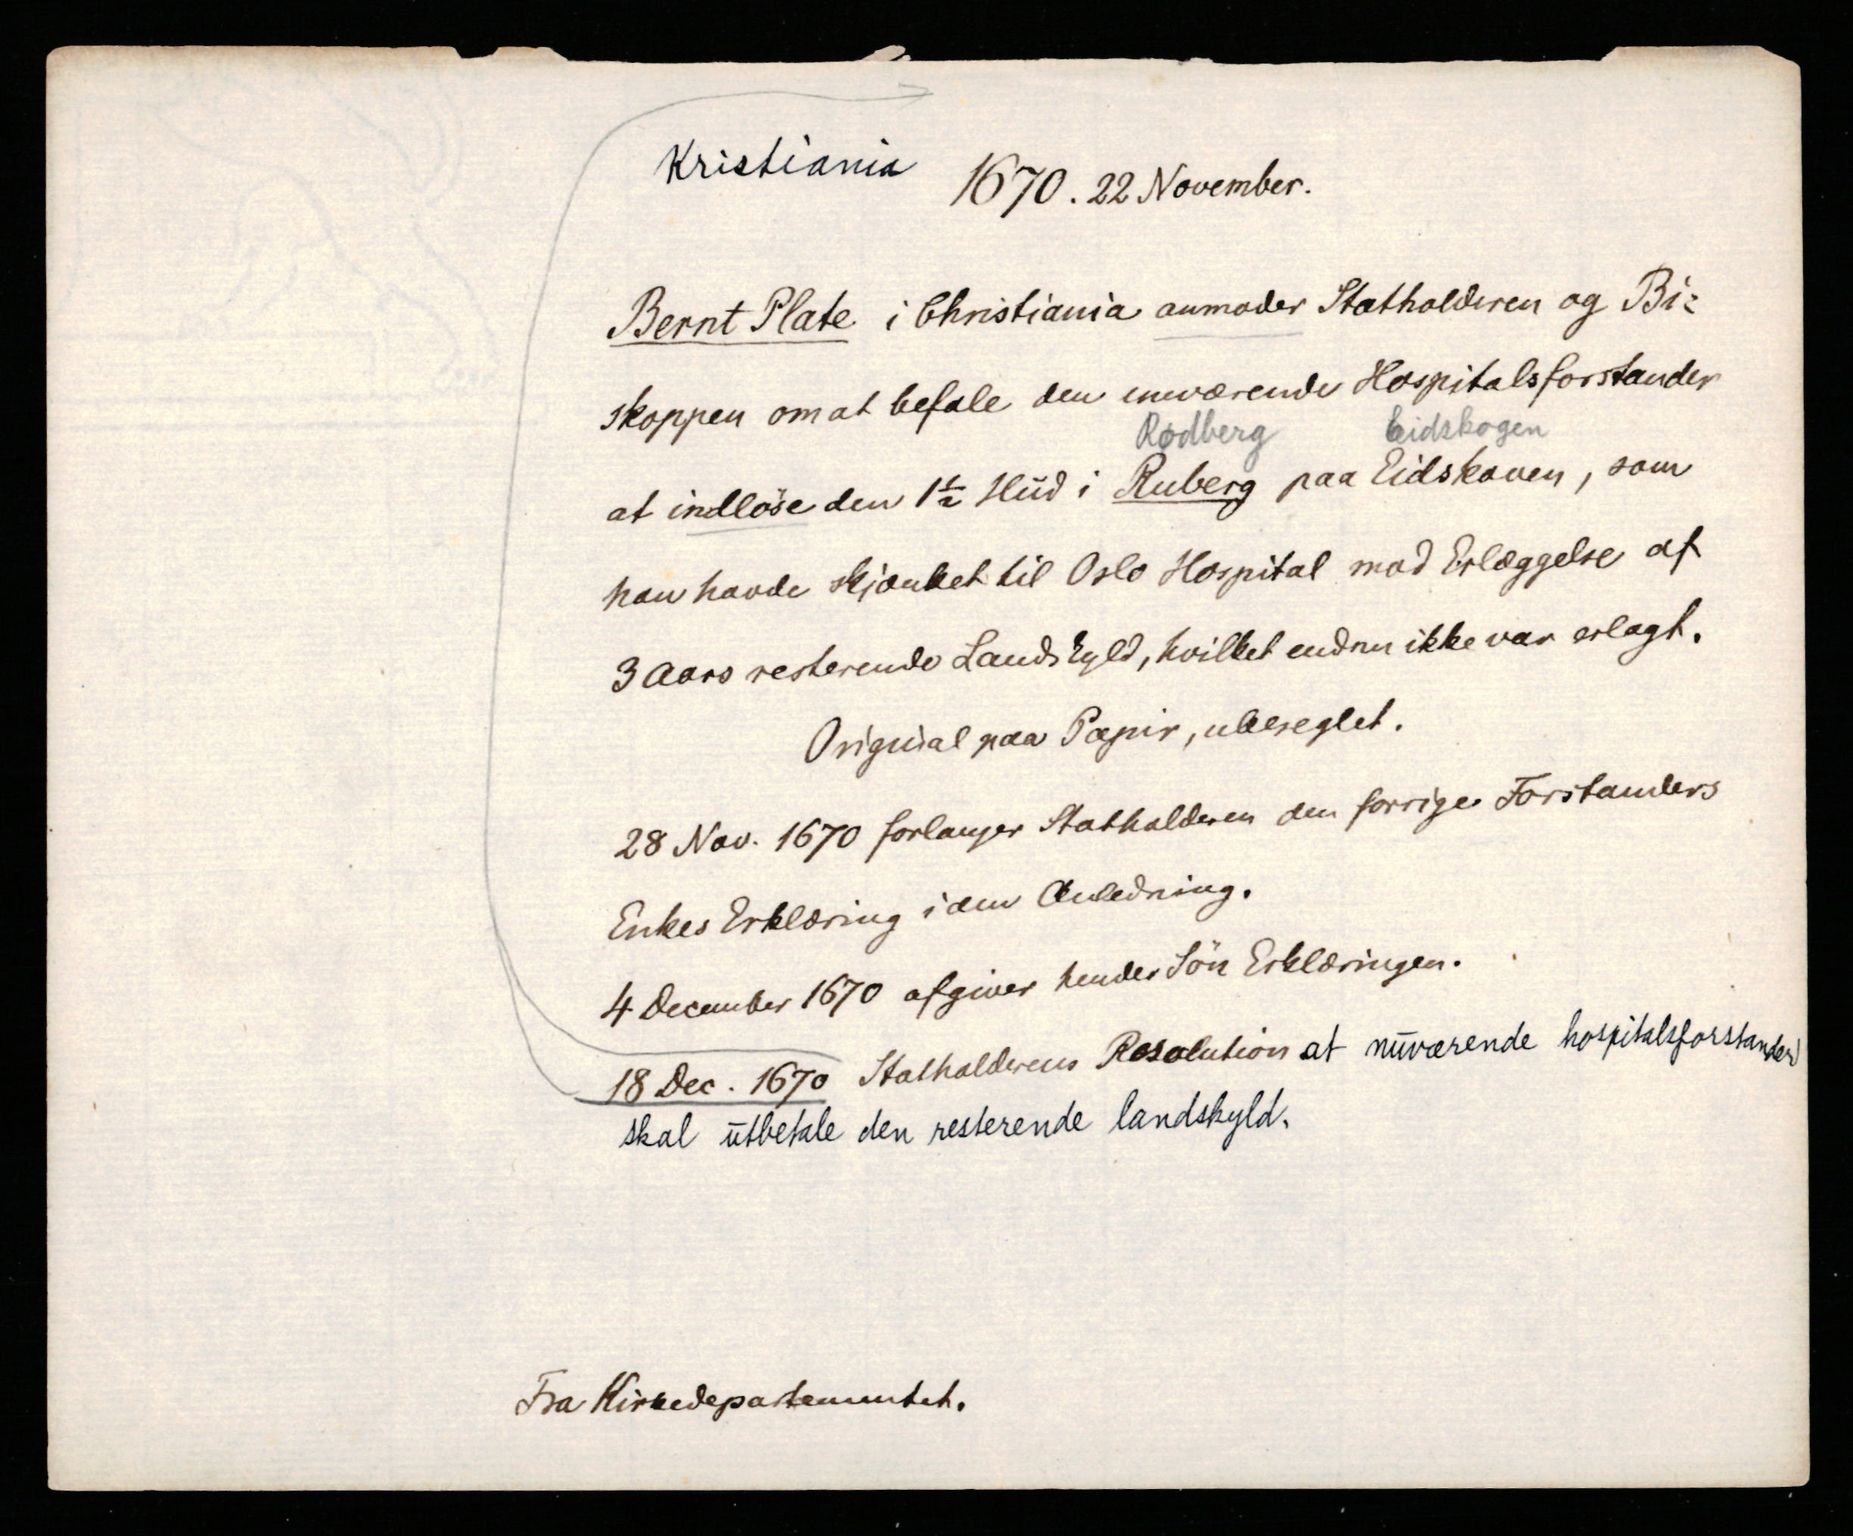 Kristiania 1670. 22 November.
Bernt Plate i Christiania anmoder Statholderen og Bi-
skoppen om at befale den nuværende Hospitalsforstander
Rødberg Eidskogen
at indlöse den 1½ Hŭd i Ruberg paa Eidskoven, som
han havde skjænket til Oslo Hospital mod Erlæggelse af
3 Aars resterende Landskyld, hvilket endnu ikke var erlagt.
Original paa Papir, ubeseglet.
28 Nov. 1670 forlanger Statholderen den forrige Forstanders
Enkes Erklæring i den Anledning.
4 December 1670 afgiver hendes Sön Erklæringen.
18 Dec. 1670 Statholderens Resolution at nūværende hospitalsforstander
skal ūtbetale den resterende landskyld.
Fra Kirkedepartementet.